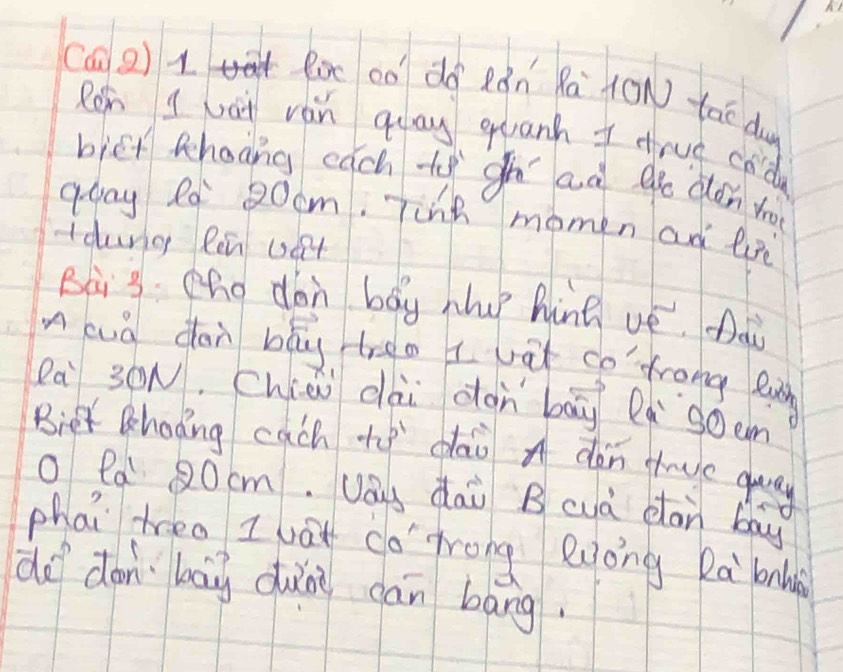 Câu 2) 1 lực có độ lớn là 10N tác dụng
lên 1 vật rắn quay quanh 1 trục cố định
biết khoảng cách từ giá của lực đến trục
quay là 20cm. Tính momen của lực
tdụng lên vật
Bài 3: Cho đòn bẩy như hình vẽ. Đầu
A của đòn bẩy treo 1 vật có trọng lượng
là 30N. Chiều dài đòn bẩy là 90cm
Biết khoảng cách từ đầu A đến trục quay
O là 20cm. Vậy đầu B của đòn bẩy
phải treo 1 vật có trọng lượng là bnhiêu
để đòn bẩy được cân bằng.